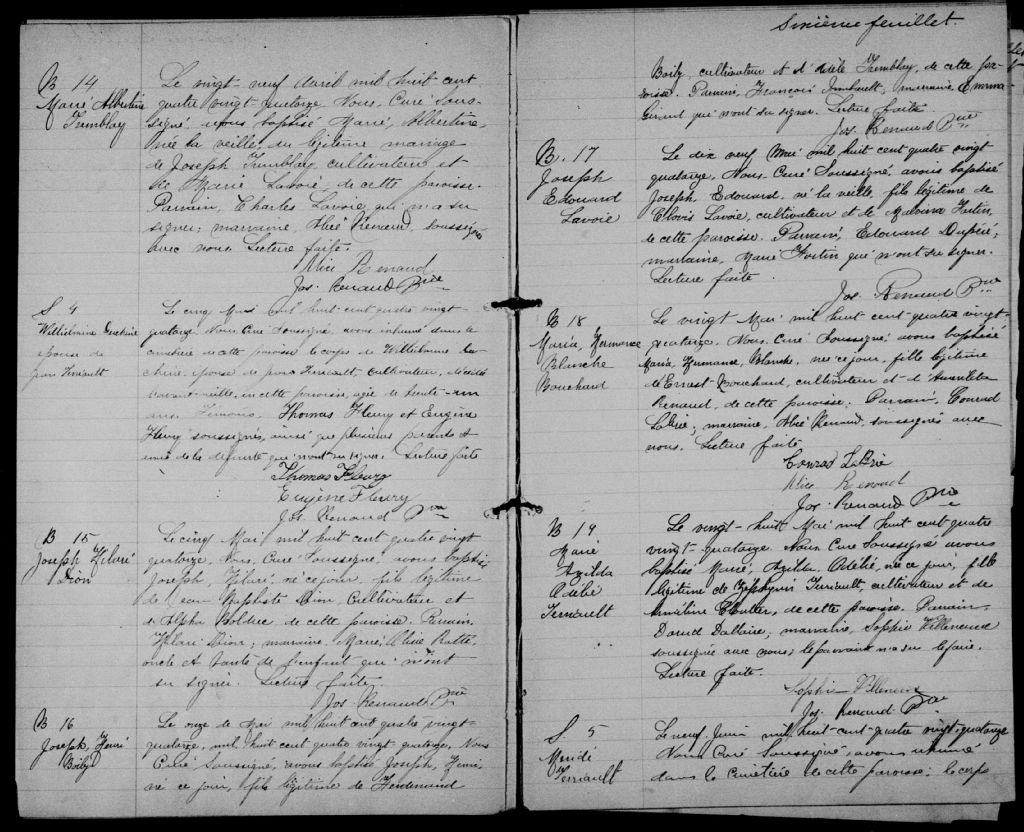 B 14
Marie Albertine
Tremblay
Le vingt-neuf avril mil huit cent
quatre vingt-quatorze, Nous, Curé sous-
signé avons baptisé Marie, Albertine,
née la veille, du légitime mariage
de Joseph Tremblay, cultivateur et
de Marie Lavoie, de cette paroisse.
Parrain, Charles Lavoie, qui n'a su
signer; marraine, Alice Renaud, soussignée
avec nous. Lecture faite.
Alice Renaud
Jos. Renaud Ptre
S 4
épouse de
Jean Terriault
Le cinq Mai mil huit cent quatre vingt-
quatorze Nous Curé soussigné, avons inhumé dans le
cimetière de cette paroisse le corps de
épouse de Jean Terriault cultivateur, décédée
avant-veille, en cette paroisse, agée de trente-un
ans. Témoins, Thomas Fleury et Eugène
Fleury soussignés, ainsi que plusieurs parents et
amis de la défunte qui n'ont su signer. Lecture faite
Thomas Fleury
Eugène Fleury
Jos. Renaud Ptre
B 15
Joseph Hilaire
Dion
Le cinq Mai mil huit cent quatre vingt
quatorze, Nous, Curé Soussigné, avons baptisé
Joseph, Hilaire, né ce jour, fils légitime
de Jean Baptiste Dion, Cultivateur et
d'Alpha Bolduc de cette paroisse. Parrain,
Hilaire Dion; marraine, Marie, Alice Ratté,
oncle et tante de l'enfant qui n'ont
su signer. Lecture faite.
Jos. Renaud Ptre
B 16
Joseph, Henri
Boily
Le onze de Mai mil huit cent quatre vingt-
quatorze, mil huit cent quatre vingt-quatorze, Nous
Curé Soussigné, avons baptisé Joseph, Henri,
né ce jour, fils légitime de Ferdinand
Sixième feuillet.
Boily, cultivateur et d'Adèle Tremblay, de cette pa-
roisse. Parrain, François Imbeault, marraine, Emma
Girard qui n'ont su signer. Lecture faite
Jos. Renaud Ptre
B. 17
Joseph
Edouard
Lavoie
Le dix neuf Mai mil huit cent quatre vingt
quatorze, Nous Curé Soussigné, avons baptisé
Joseph, Edouard, né la veille, fils légitime de
Clovis Lavoie, cultivateur et de Malvina Fortin,
de cette paroisse. Parrain, Edouard Dupéré;
marraine, Marie Fortin qui n'ont su signer.
Lecture faite.
Jos. Renaud Ptre
B 18
Maria, Hermance
Blanche
Bouchard
Le vingt Mai mil huit cent quatre vingt-
quatorze. Nous, Curé Soussigné avons baptisé
Maria, Hermance, Blanche, née ce jour, fille légitime
de Ernest Bouchard, cultivateur et d'Amanda
Renaud, de cette paroisse. Parrain, Conrad
LaBrie; marraine, Alice Renaud, soussignés avec
nous. Lecture faite
Conrad LaBrie
Alice Renaud
Jos. Renaud Ptre
B 19
Marie
Azilda
Odélie
Terriault
Le vingt-huit Mai mil huit cent quatre
vingt-quatorze. Nous Curé Soussigné avons
baptisé Marie, Azilda, Odélie, née ce jour, fille
légitime de Zéphyrin Terriault, cultivateur et de
de cette paroisse. Parrain
David Dallaire, marraine, Sophie Villeneuve
soussignée avec nous; le parrain n'a su le faire.
Lecture faite.
Sophie Villeneuve
Jos. Renaud Ptre
S 5
Terriault
Le neuf Juin mil huit cent quatre vingt-quatorze
Nous Curé Soussigné, avons inhumé
dans le Cimetière de cette paroisse, le corps